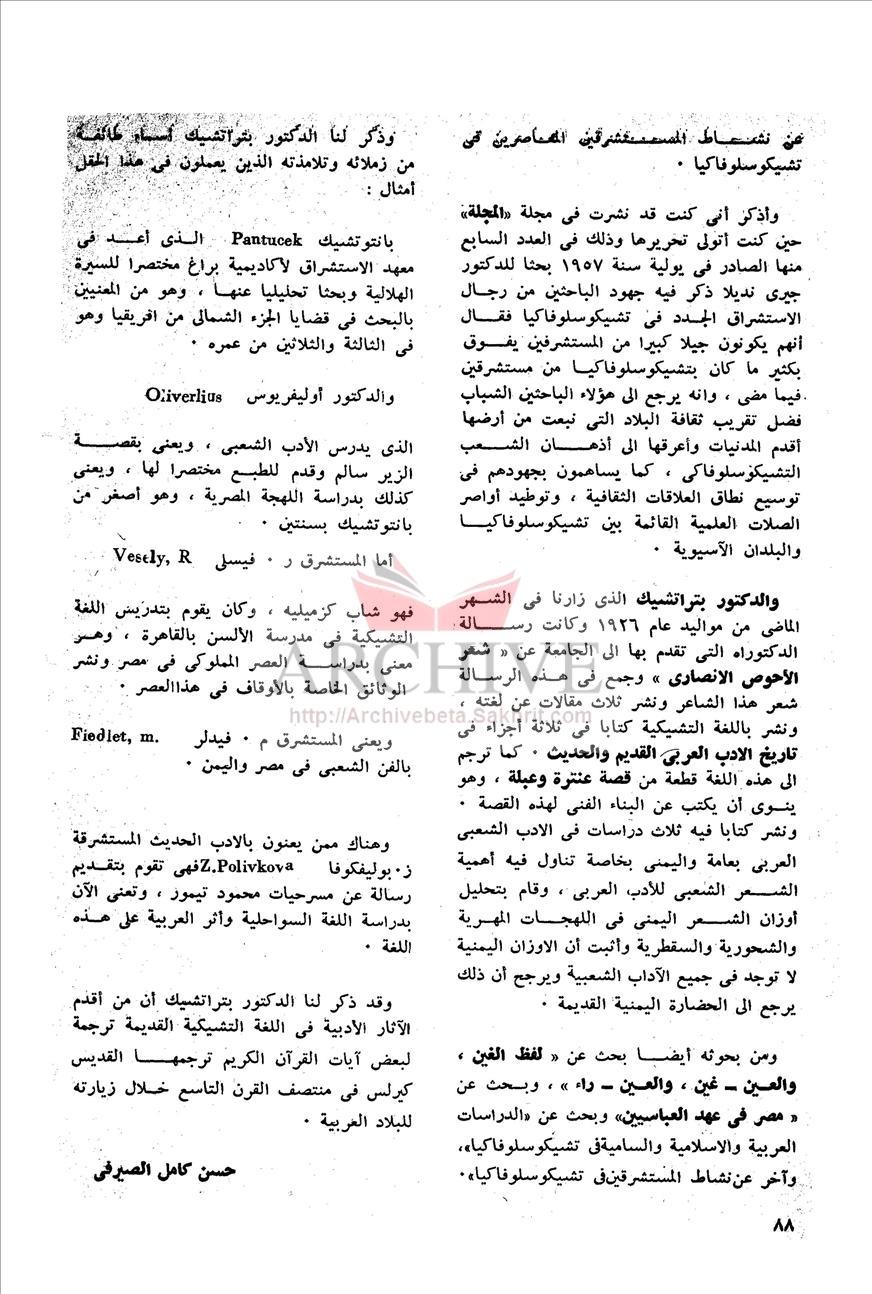 عن نشاط المستشرقين المعاصرين في
تشيكوسلوفاكيا ٠
وأذكر أنى كنت قد نشرت فى مجلة «المجلة»
حين كنت أتولى تحريرها وذلك فى العدد السابع
منها الصادر فى يولية سنة ١٩٥٧ بحثا للدكتور
جيرى نديلا ذكر فيه جهود الباحثين من رجال
الاستشراق الجدد فى تشيكوسلوفاكيا فقال
أنهم يكونون جيلا كبيرا من المستشرقين يفوق
بكثير ما كان بتشيكوسلوفاكيا من مستشرقين
فيما مضى ، وانه يرجع الى هؤلاء الباحثين الشباب
فضل تقريب ثقافة البلاد التى نبعت من أرضها
أقدم المدنيات وأعرقها الى أذهان الشعب
التشيكوسلوفاكى ، كما يساهمون بجهودهم فى
توسيع نطاق العلاقات الثقافية ، وتوطيد أواصر
الصلات العلمية القائمة بين تشيكوسلوفاكيا
والبلدان الآسيوية ٠
والدكتور بتراتشيك الذى زارنا فى الشهر
الماضى من مواليد عام ١٩٢٦ وكانت رسالة
الدكتوراه التى تقدم بها الى الجامعة عن « شعر
الأحوص الانصارى » وجمع فى هذه الرسالة
شعر هذا الشاعر ونشر ثلاث مقالات عن لغته ،
ونشر باللغة التشيكية كتابا فى ثلاثة أجزاء فى
تاريخ الادب العربى القديم والحديث ٠ كما ترجم
الى هذه اللغة قطعة من قصة عنترة وعبلة ، وهو
ينوى أن يكتب عن البناء الفنى لهذه القصة ٠
ونشر كتابا فيه ثلاث دراسات فى الادب الشعبى
العربى بعامة واليمنى بخاصة تناول فيه أهمية
الشعر الشعبى للأدب العربى ، وقام بتحليل
أوزان الشعر اليمنى فى اللهجات المهرية
والشحورية والسقطرية وأثبت أن الاوزان اليمنية
لا توجد فى جميع الآداب الشعبية ويرجح أن ذلك
يرجع الى الحضارة اليمنية القديمة ٠
ومن بحوثه أيضا بحث عن « لفظ الغين ،
والعين – غين ، والعين – راء » ، وبحث عن
« مصر فى عهد العباسيين» وبحث عن «الدراسات
العربية والاسلامية والسامية فى تشيكوسلوفاكيا»،
وآخر عن نشاط المستشرقين فى تشيكوسلوفاكيا»٠
وذكر لنا الدكتور بتراتشيك أسماء طائفة
من زملائه وتلامذته الذين يعملون فى هذا الحقل
أمثال :
بانتوتشيك Pantucek الذى أعد فى
معهد الاستشراق لأكاديمية براغ مختصرا للسيرة
الهلالية وبحثا تحليليا عنها ، وهو من المعنيين
بالبحث فى قضايا الجزء الشمالى من افريقيا وهو
فى الثالثة والثلاثين من عمره ٠
والدكتور أوليفريوس Oliverlius
الذى يدرس الأدب الشعبى ، ويعنى بقصة
الزير سالم وقدم للطبع مختصرا لها ، ويعنى
كذلك بدراسة اللهجة المصرية ، وهو أصغر من
بانتوتشيك بسنتين ٠
أما المستشرق ر ٠ فيسلى Vesely, R
فهو شاب كزميليه ، وكان يقوم بتدريس اللغة
التشيكية فى مدرسة الألسن بالقاهرة ، وهو
معنى بدراسة العصر المملوكى فى مصر ونشر
الوثائق الخاصة بالأوقاف فى هذا العصر ٠
ويعنى المستشرق م ٠ فيدلر Fiedlet, m.
بالفن الشعبى فى مصر واليمن ٠
وهناك ممن يعنون بالادب الحديث المستشرقة
ز٠بوليفكوفا Z.Polivkova فهى تقوم بتقديم
رسالة عن مسرحيات محمود تيمور ، وتعنى الآن
بدراسة اللغة السواحلية وأثر العربية على هذه
اللغة ٠
وقد ذكر لنا الدكتور بتراتشيك أن من أقدم
الآثار الأدبية فى اللغة التشيكية القديمة ترجمة
لبعض آيات القرآن الكريم ترجمها القديس
كيرلس فى منتصف القرن التاسع خلال زيارته
للبلاد العربية ٠
حسن كامل الصيرفى
٨٨
ARCHIVE
http://Archivebeta.Sakhrit.com